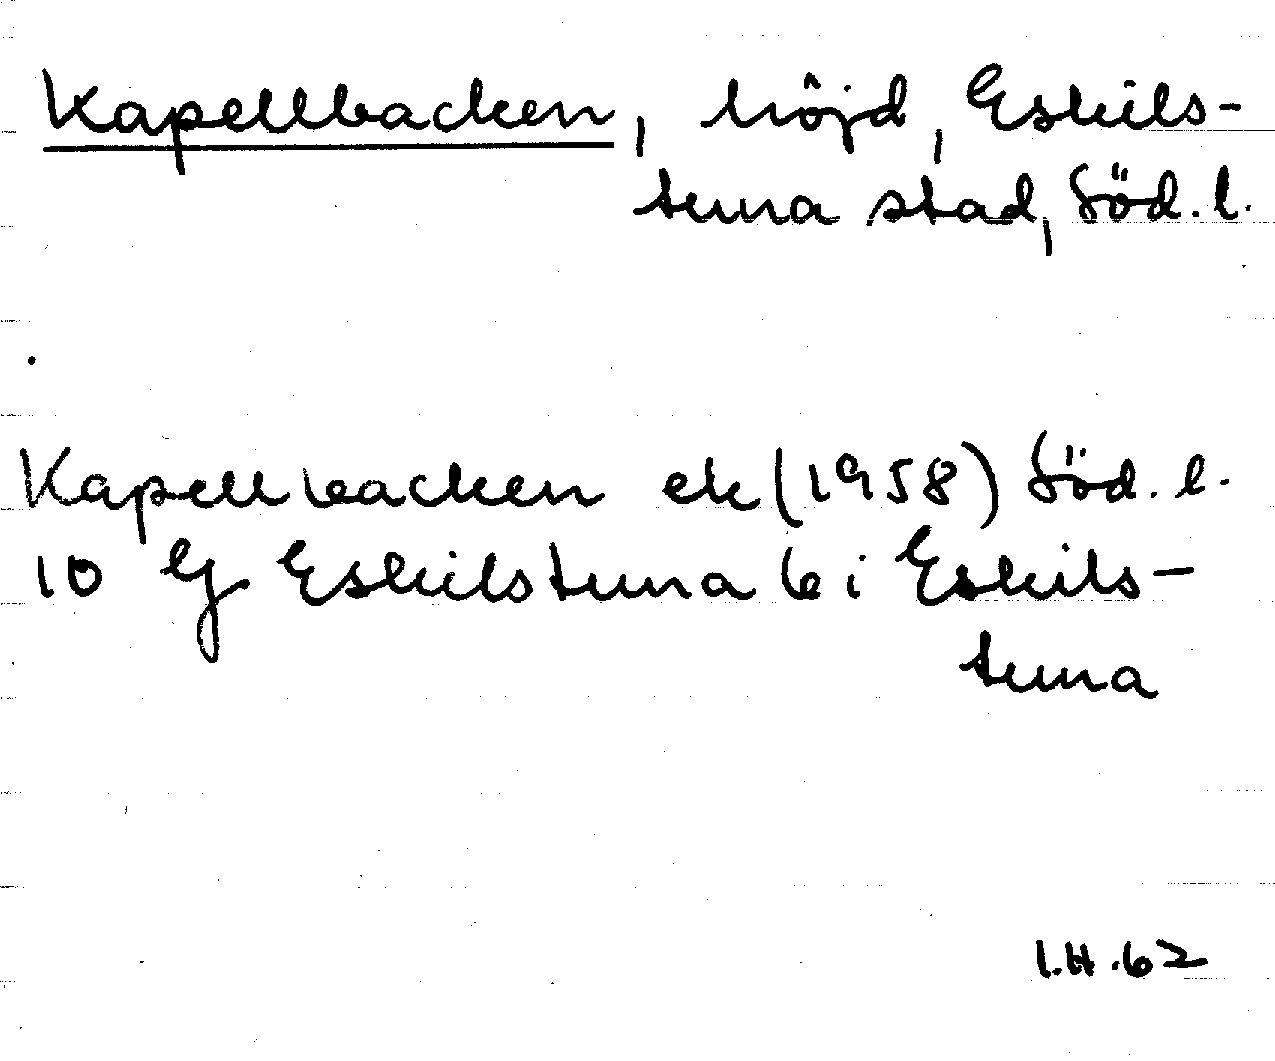 Kapellbacken, höjd, Eskils-
tuna stad, Söd. l.
Kapellbacken ek (1958) Söd. l.
10 G Eskilstuna 6 i Eskils-
tuna
I.H. 62